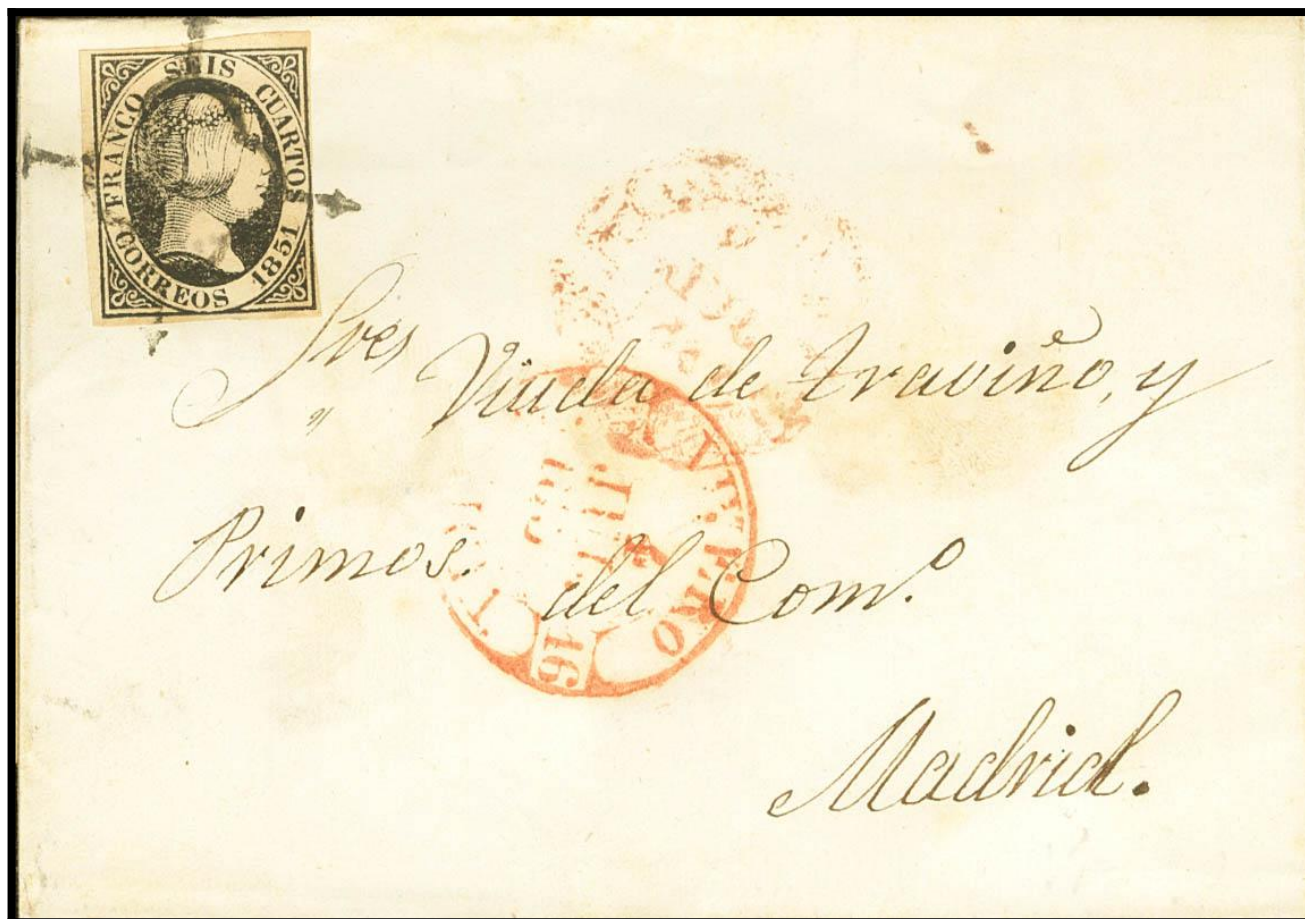 FRANCO SEIS CUARTOS
CORREOS 1851
Sres Viuda de Traviño, y
Primos. del Com.º
Madrid.
16